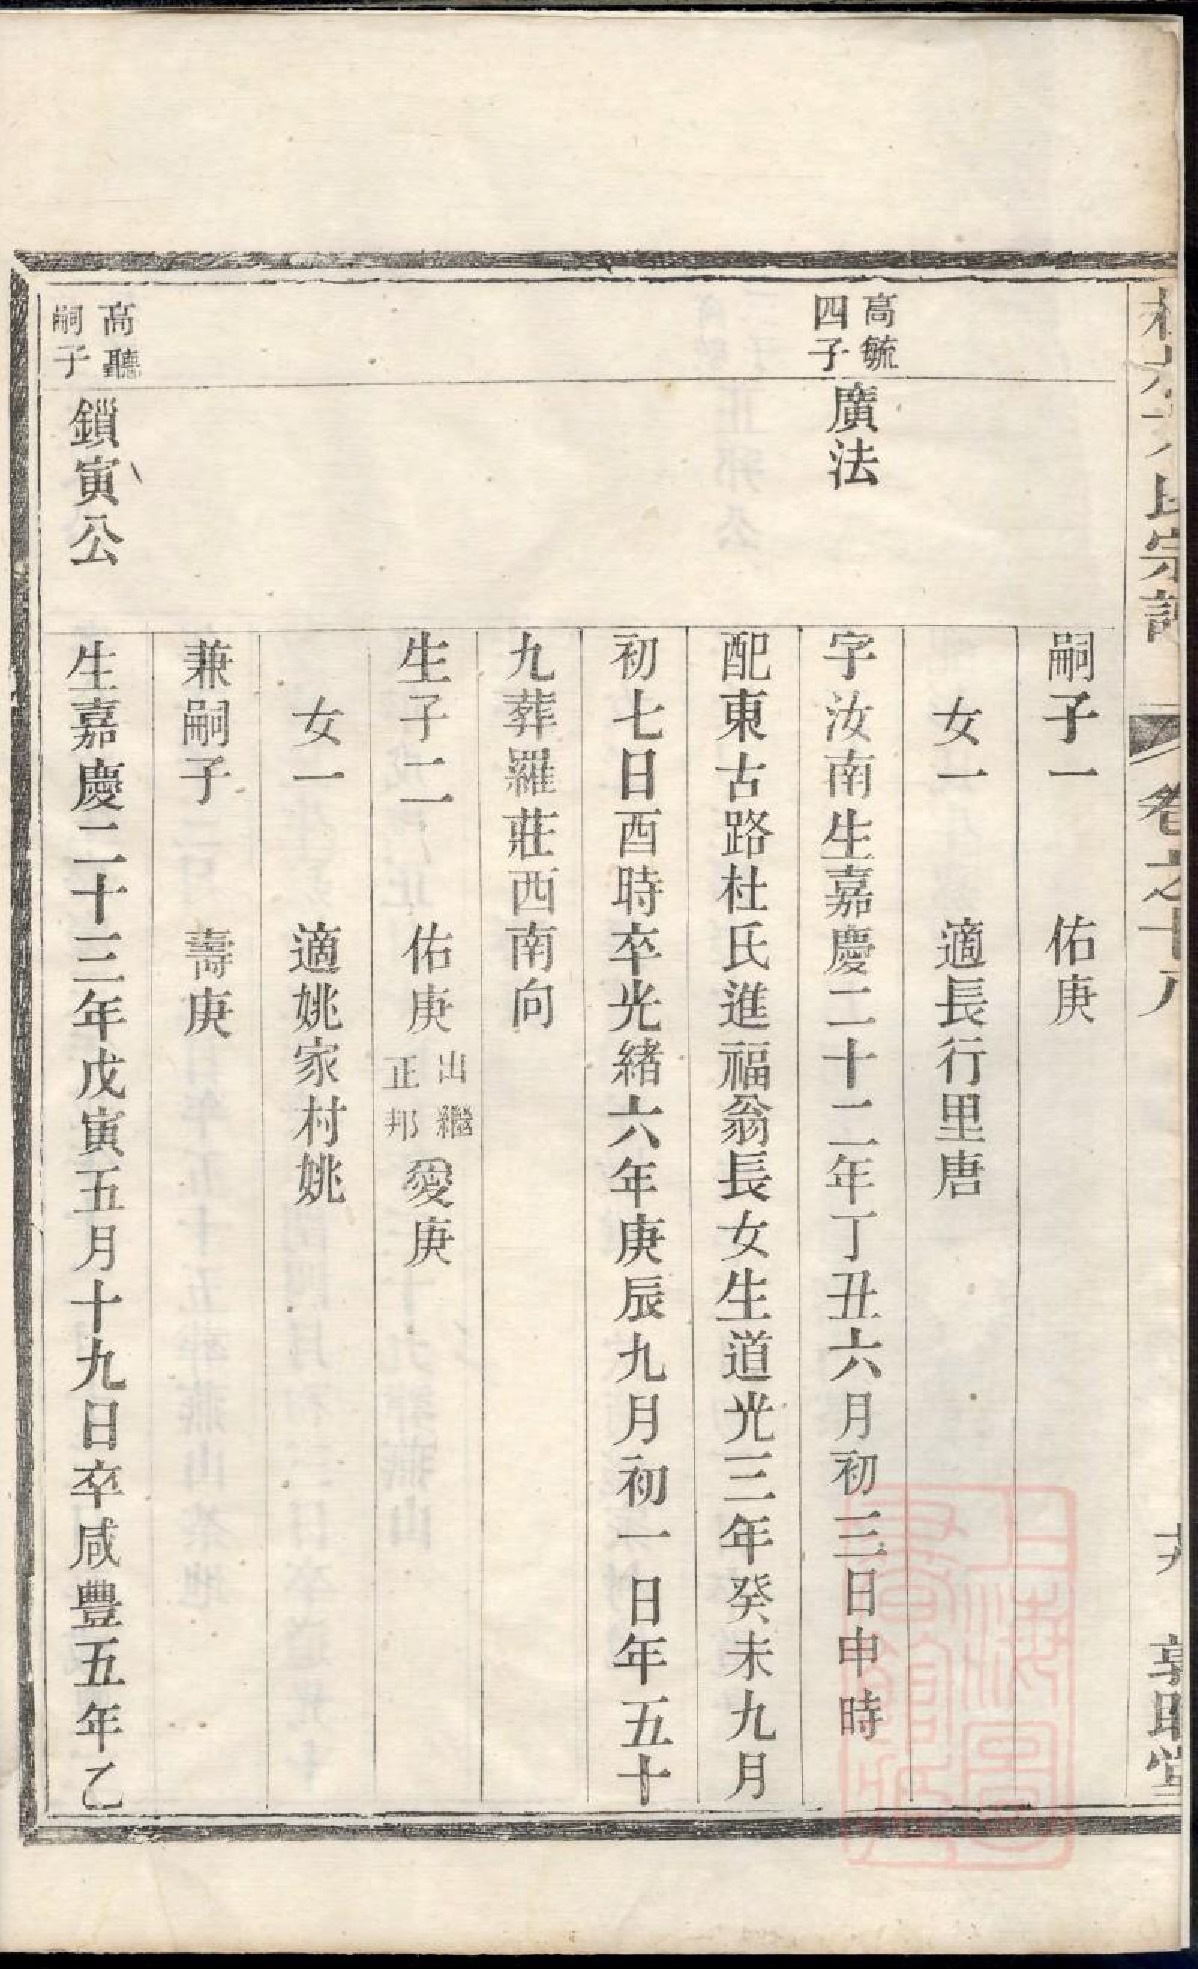 氏宗譜 卷之十八 敦睦堂
嗣子一 佑庚
女一 適長行里唐
高毓四子 廣法 字汝南生嘉慶二十二年丁丑六月初三日申時
配東古路杜氏進福翁長女生道光三年癸未九月
初七日酉時卒光緒六年庚辰九月初一日年五十
九葬羅莊西南向
生子二 佑庚出繼正邦 愛庚
女一 適姚家村姚
兼嗣子 壽庚
高聽嗣子 鎖寅公 生嘉慶二十三年戊寅五月十九日卒咸豐五年乙
上海圖書館藏